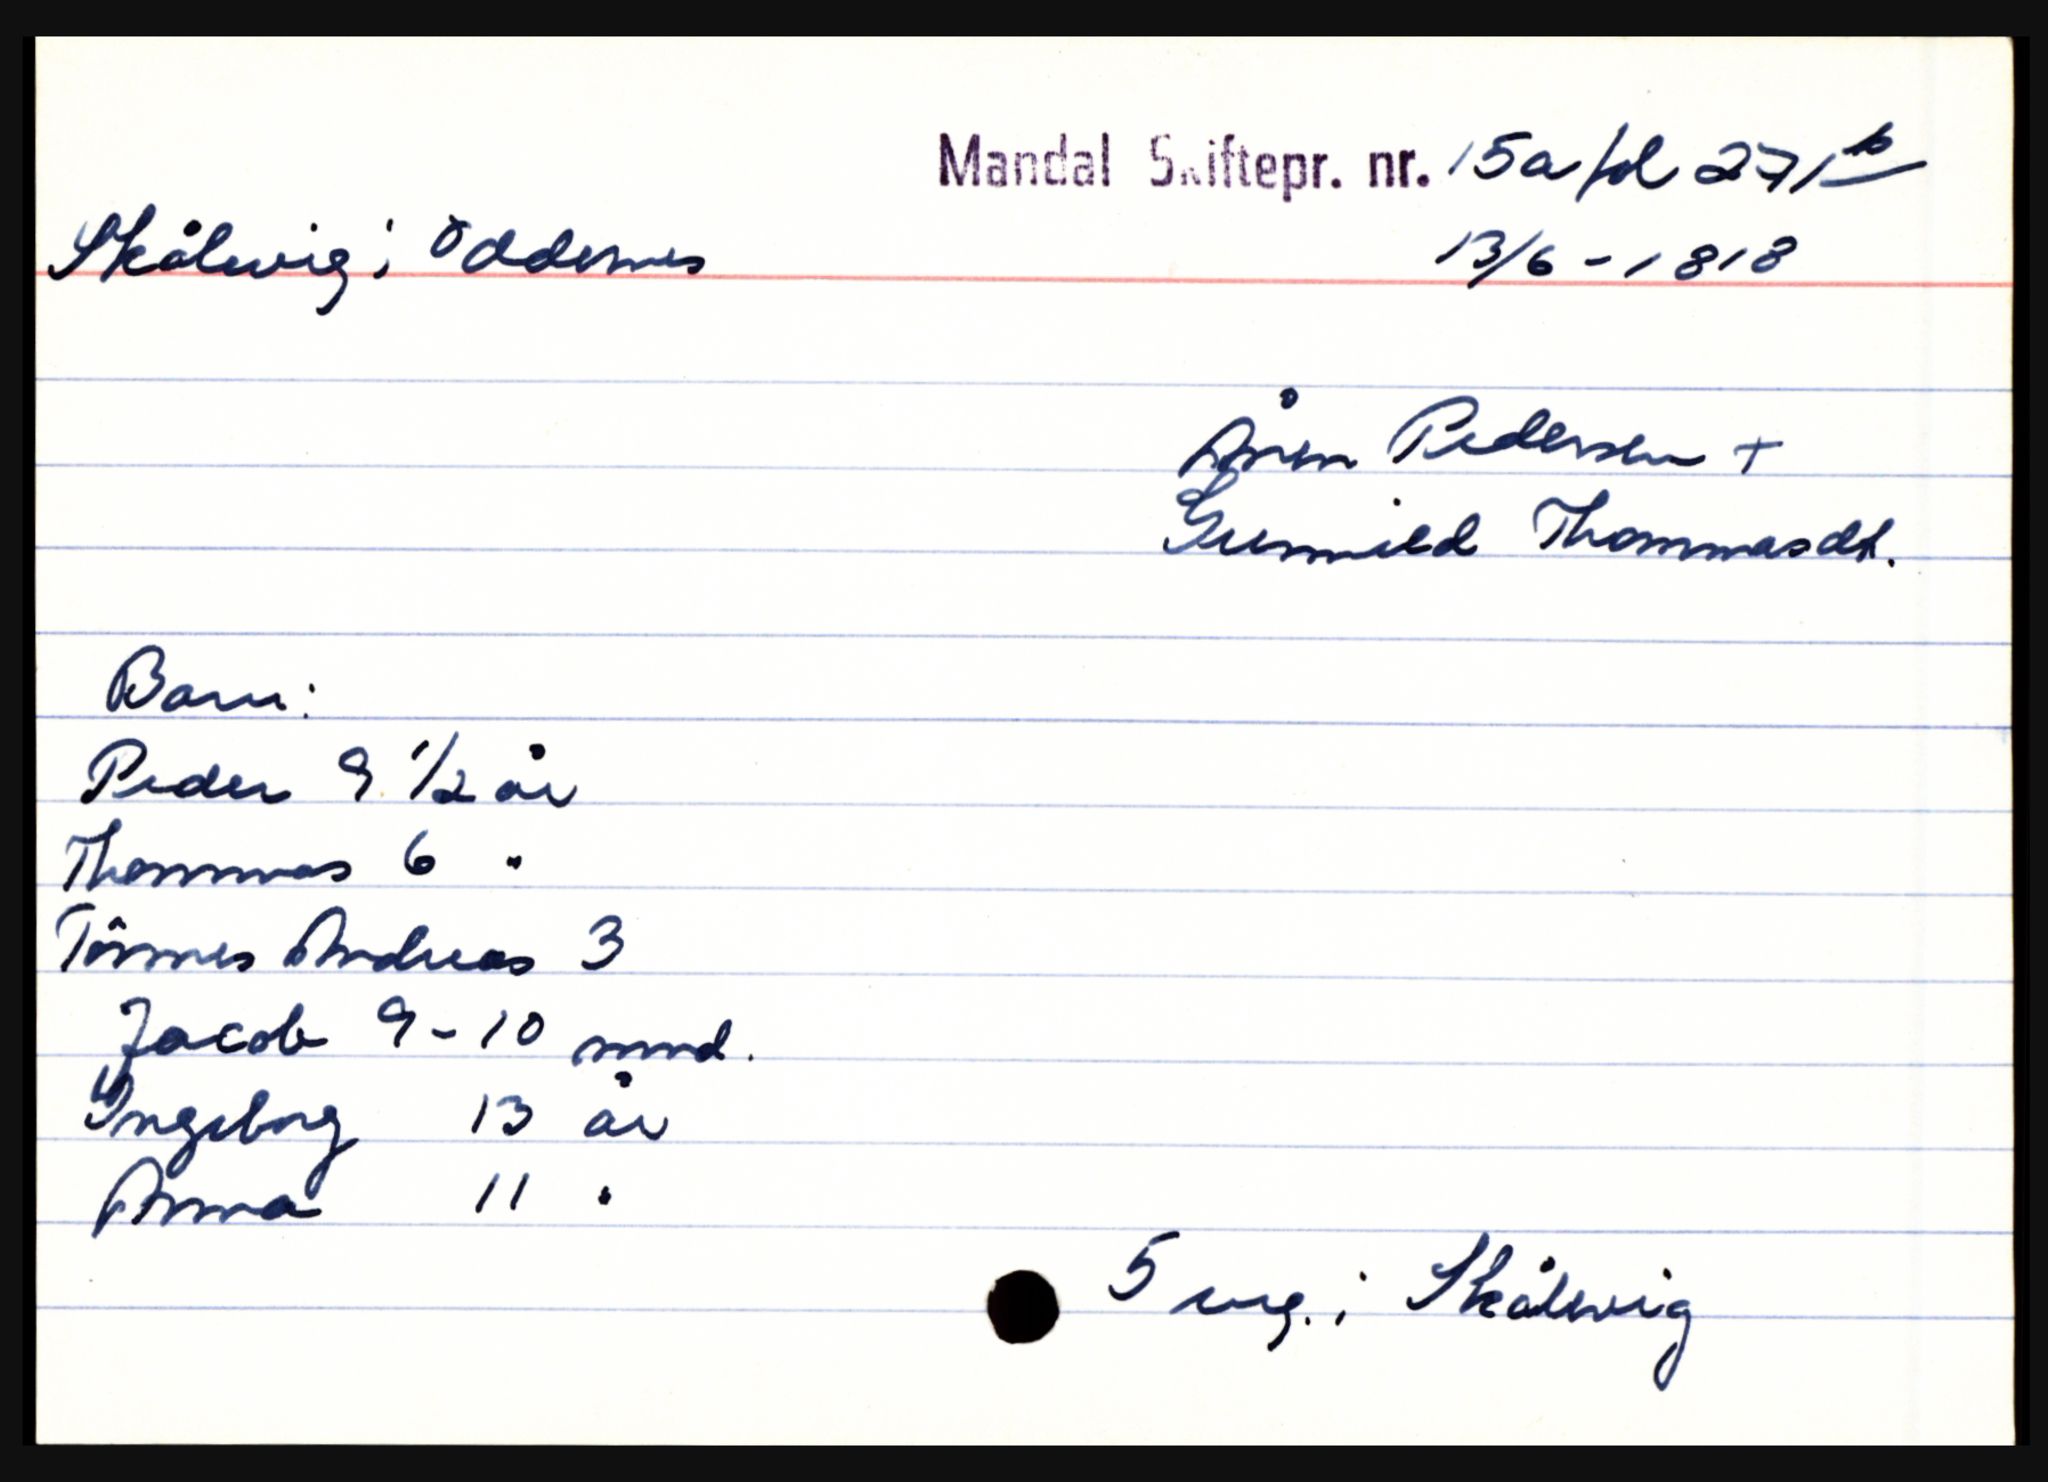 Mandal Skiftepr. nr. 15a fol 271 b
Skålevig i Oddernes 13/6 - 1818
Ånen Pedersen +
Gunnild Thommasdt.
Barn:
Peder 9 1/2 år
Thommas 6 "
Tönnes Andreas 3
Jacob 9-10 mnd.
Ingeborg 13 år
Anna 11 "
5 ung. i Skålevig